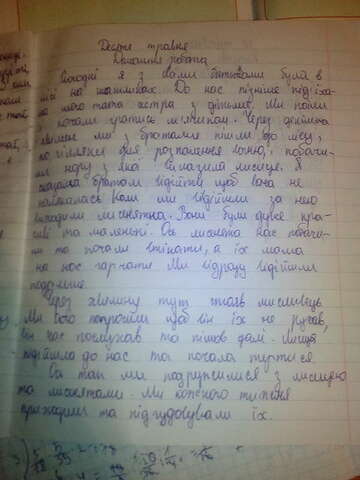 Десяте травня
Домашня робота
Сьогодні я з своїми батьками була в
лісі на шашликах. До нас пізніше під'їха-
ла мого тата сестра з дітьми. Ми поїли
і почали гратись м'ячику. Через декілька
хвилин ми з братами пішли до лісу,
по гілляки для розпалення вогню, і побачи-
ли нору з яка вилазила лисиця. Я
сказала братам відійти щоб вона не
злякалась коли ми відійшли за нею
виходили лисенятка. Вони були дуже кра-
сиві та маленькі. Ось лисенята нас побачи-
ли та почали втікати, а їх мама
на нас гарчати. Ми відразу відійшли
подальше.
Через хвилину тут стояв мисливець
Ми його попросили щоб він їх не рухав,
він нас послухав та пішов далі. Лисиця
підійшла до нас та почала тертися.
Ось так ми подружилися з лисицею
та лисенятами. Ми кожного тижня
приходили та підгодовували їх.